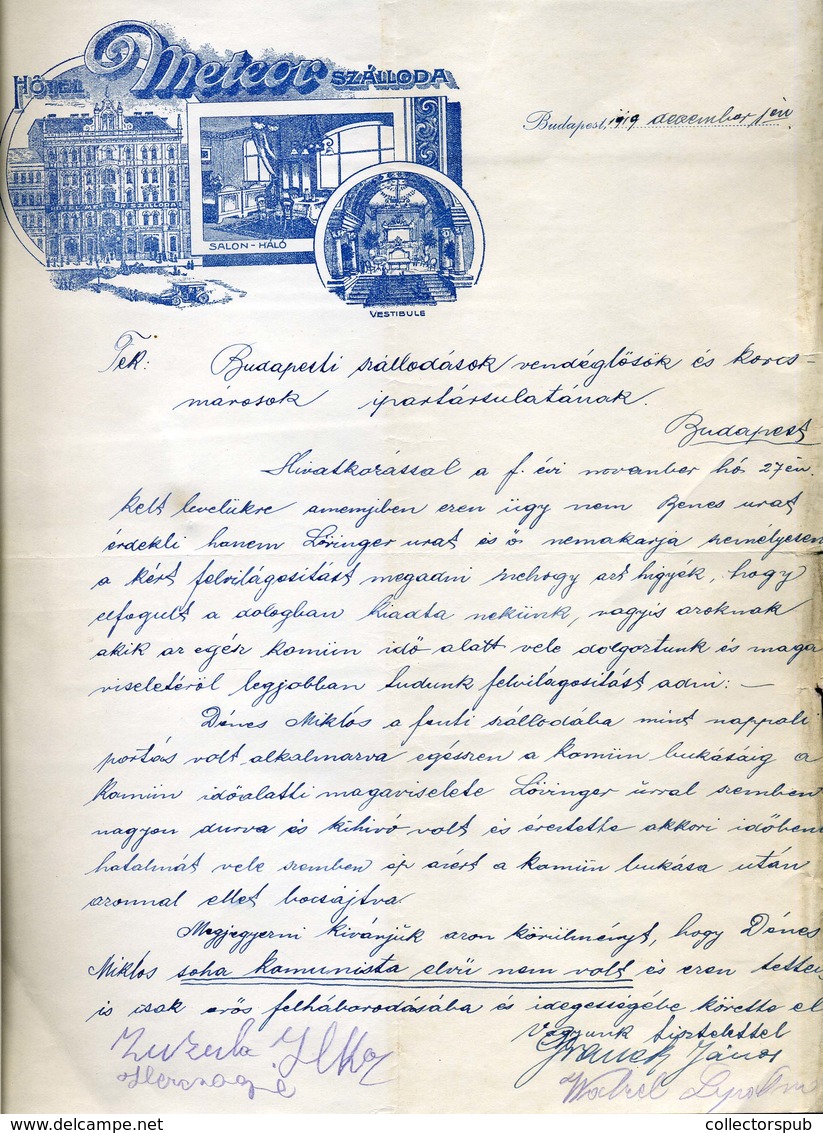 HÔTEL Meteor SZÁLLODA
HOTEL METEOR SZÁLLODA
SALON - HÁLÓ
VESTIBULE
Budapest, 1919 dezember jén
Tek: Budapesti szállodások vendéglősök és korcs-
márosok ipartársulatának.
Budapest
Hivatkozással a f. évi november hó 27én
kelt levelükre amenjiben ezen ügy nem Benes urat
érdekli hanem Löringer urat és ő nemakarja személyesen
a kért felvilágositást megadni nehogy azt higyék, hogy
elfogult a dologban kiadta nekünk, vagyis azoknak
akik az egész komün idő alatt vele dolgoztunk és maga
viseletéröl legjobban tudunk felvilágositást adni: —
Dénes Miklós a fenti szállodába mint nappali
portás volt alkalmazva egésszen a komün bukásáig a
komün időalatti magaviselete Lövinger úrral szemben
nagyon durva és kihivó volt és éreztette akkori időben
hatalmát vele szemben ép azért a komün bukása után
azonnal ellet bocsájtva.
Megjegyezni kivánjuk azon körülményt, hogy Dénes
Miklós soha komunista elvü nem volt és ezen tettei
is csak erős felháborodásába és idegességébe követte el
Vagyunk tisztelettel
Zuzula Ilka János
Herczog
collectorspub